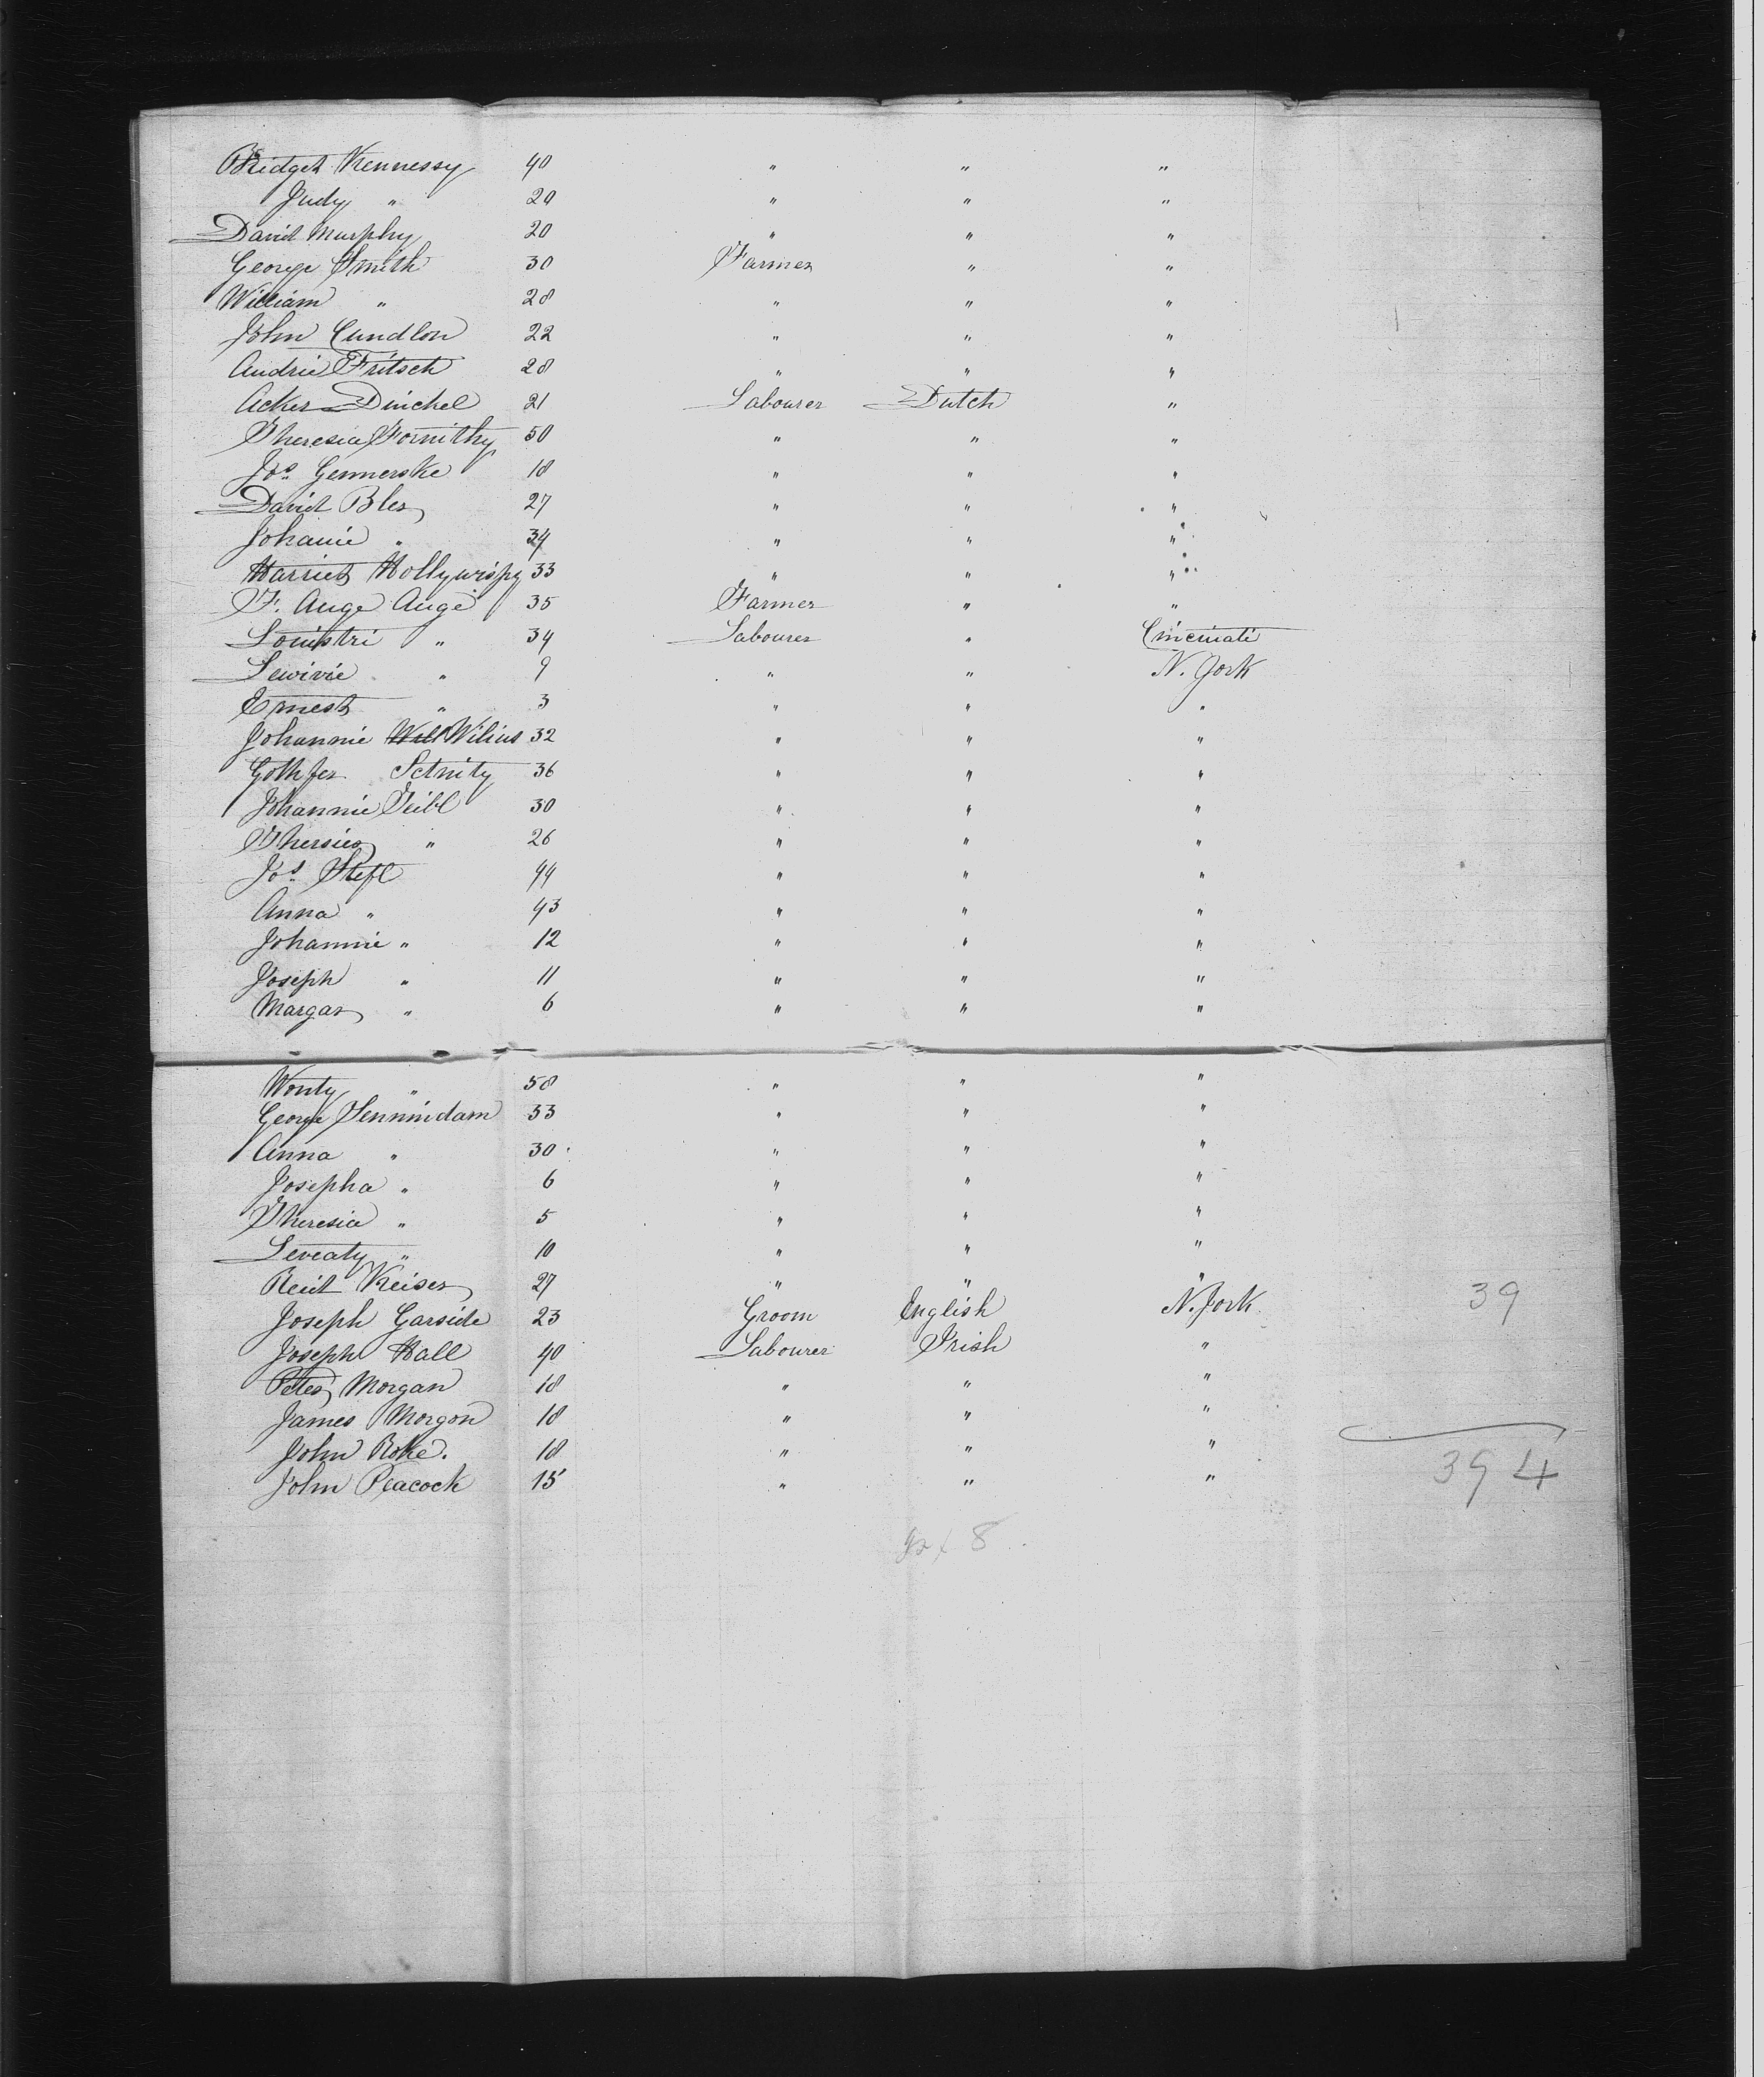 Bridget Kennessy 40 " " "
Judy " 29 " " "
David Murphy 20 " " "
George Smith 30 Farmer " "
William " 28 " " "
John Cundlon 22 " " "
Andrie Fritsch 28 " " "
Acker Dinckel 21 Labourer Dutch "
Theresia Fornithy 50 " " "
Jos. Gennerske 18 " " "
David Bler 27 " " "
Johanie " 34 " " "
Harriet Hollywispy 33 " " "
F. Auge Auge 35 Farmer " "
Louistri " 34 Labourer " Cincinati
Lewivie " 9 " " N. York
Ernest " 3 " " "
Johannie Wilius 32 " " "
Gothfer Setnity 36 " " "
Johannie Teibl 30 " " "
Thersier " 26 " " "
Jos. Stefl 44 " " "
Anna " 43 " " "
Johannie " 12 " " "
Joseph " 11 " " "
Margar " 6 " " "
Wonty " 58 " " "
George Sennindam 33 " " "
Anna " 30 " " "
Josepha " 6 " " "
Theresia " 5 " " "
Leveaty " 10 " " "
Reit Keiser 27 " " "
Joseph Garside 23 Groom English N. York 39
Joseph Hall 40 Labourer Irish "
Peter Morgan 18 " " "
James Morgon 18 " " "
John Roke. 18 " " "
John Peacock 15 " " " 394
8